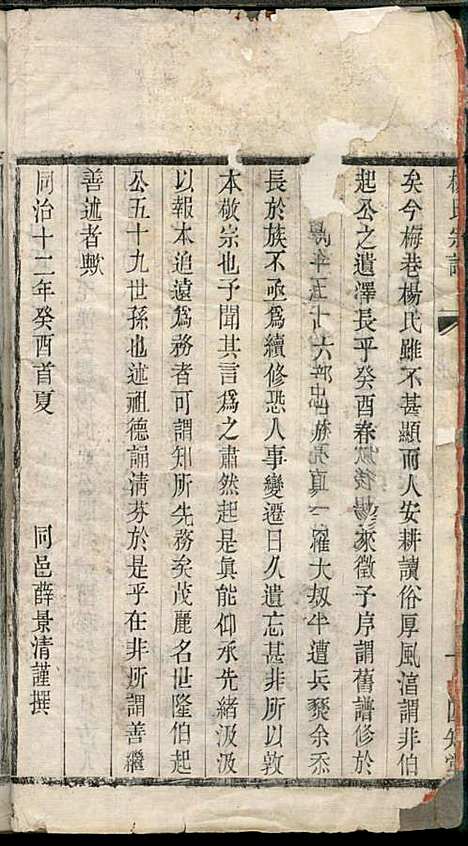 楊氏宗譜
四知堂
矣今梅巷楊氏雖不甚顯而人安耕讀俗厚風淳謂非伯
起公之遺澤長乎癸酉春欽後楊彣來徵予序謂舊譜修於
五十六 一罹大刼半遭兵燹余忝
長於族不亟爲續修恐人事變遷日久遺忘甚非所以敦
本敬宗也予聞其言爲之肅然起是眞能仰承先緒汲汲
以報本追遠爲務者可謂知所先務矣茂麗名世隆伯起
公五十九世孫也述祖德誦淸芬於是乎在非所謂善繼
善述者歟
同治十二年癸酉首夏 同邑薛景清謹撰